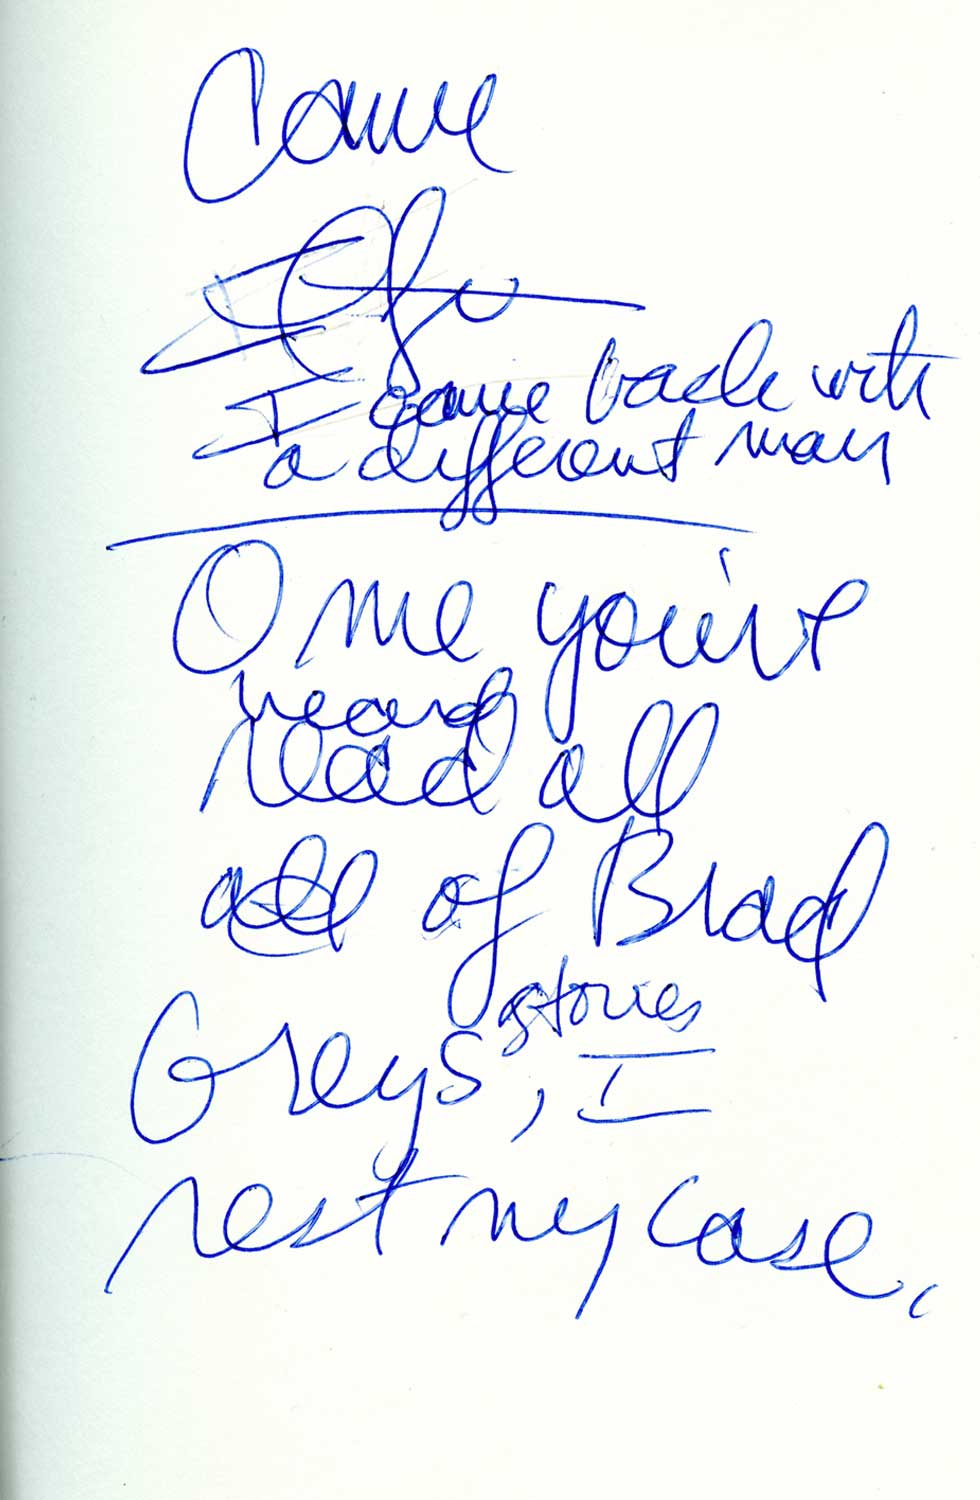 Came
I
I came back with
a different man
O me you've
heard
read all
all of Brad
stories
Greys, I
rest my case.